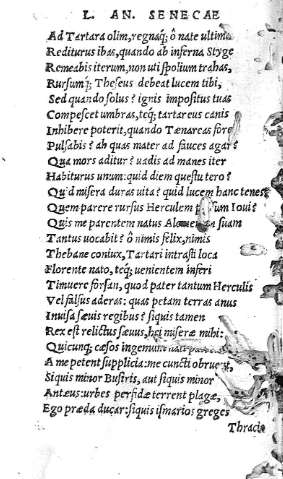 L. AN. SENECAE
Ad Tartara olim, regnaq; ô nate ultima
Rediturus ibas, quando ab inferna Styge
Remeabis iterum, non uti spolium trahas,
Rursumq; Theseus debeat lucem tibi,
Sed quando solus? ignis impositus tuas
Compescet umbras, teq; tartareus canis
Inhibere poterit, quando Tænareas fores
Pulsabis? ab quas mater ad fauces agar?
Qua mors aditur? uadis ad manes iter
Habiturus unum: quid diem questu tero?
Quid misera duras uita? quid lucem hanc tenes?
Quem parere rursus Herculem possum Ioui?
Quis me parentem natus Alcmenam suam
Tantus uocabit? ô nimis felix, nimis
Thebane coniux, Tartari intrasti loca
Florente nato, teq; uenientem inferi
Timuere forsan, quod pater tantum Herculis
Vel falsus aderas: quas petam terras anus
Inuisa sæuis regibus? siquis tamen
Rex est relictus sæuus, hei miseræ mihi:
Quicunq; cæsos ingemunt nati
A me petent supplicia: me cuncti obruent,
Siquis minor Busiris, aut siquis minor
Antæus: urbes perfidæ terrent plagæ,
Ego præda ducar: siquis ismarios greges
Thracis